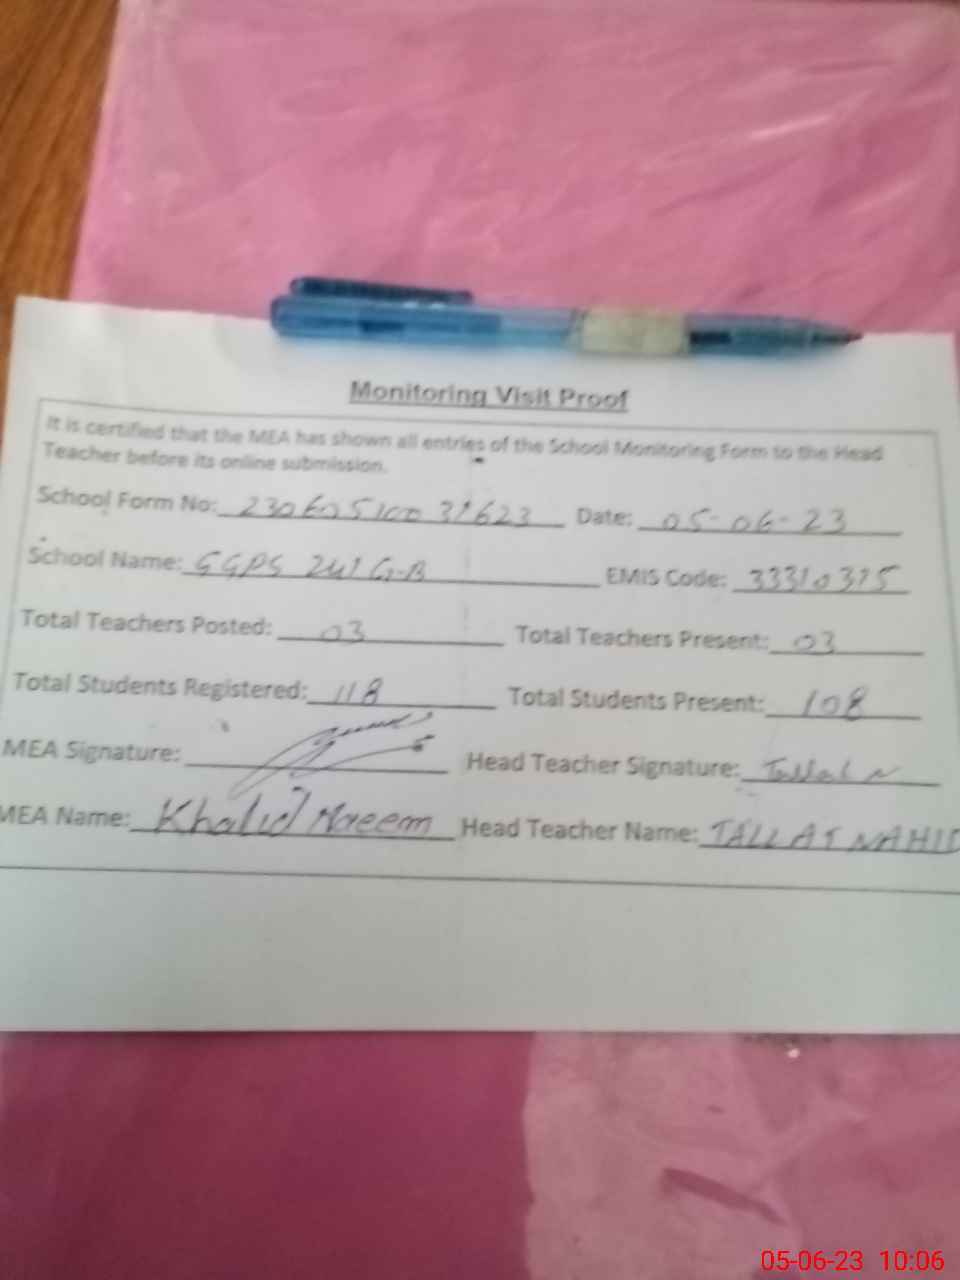 Monitoring Visit Proof
It is certified that the MEA has shown all entries of the School Monitoring Form to the Head
Teacher before its online submission.
School Form No: 23060510031623 Date: 05-06-23
School Name: GGPS 241 G-B EMIS Code: 33310315
Total Teachers Posted: 03 Total Teachers Present: 03
Total Students Registered: 118 Total Students Present: 108
MEA Signature: Head Teacher Signature: Tallat N
MEA Name: Khalid Naeem Head Teacher Name: TALLAT NAHID
05-06-23 10:06